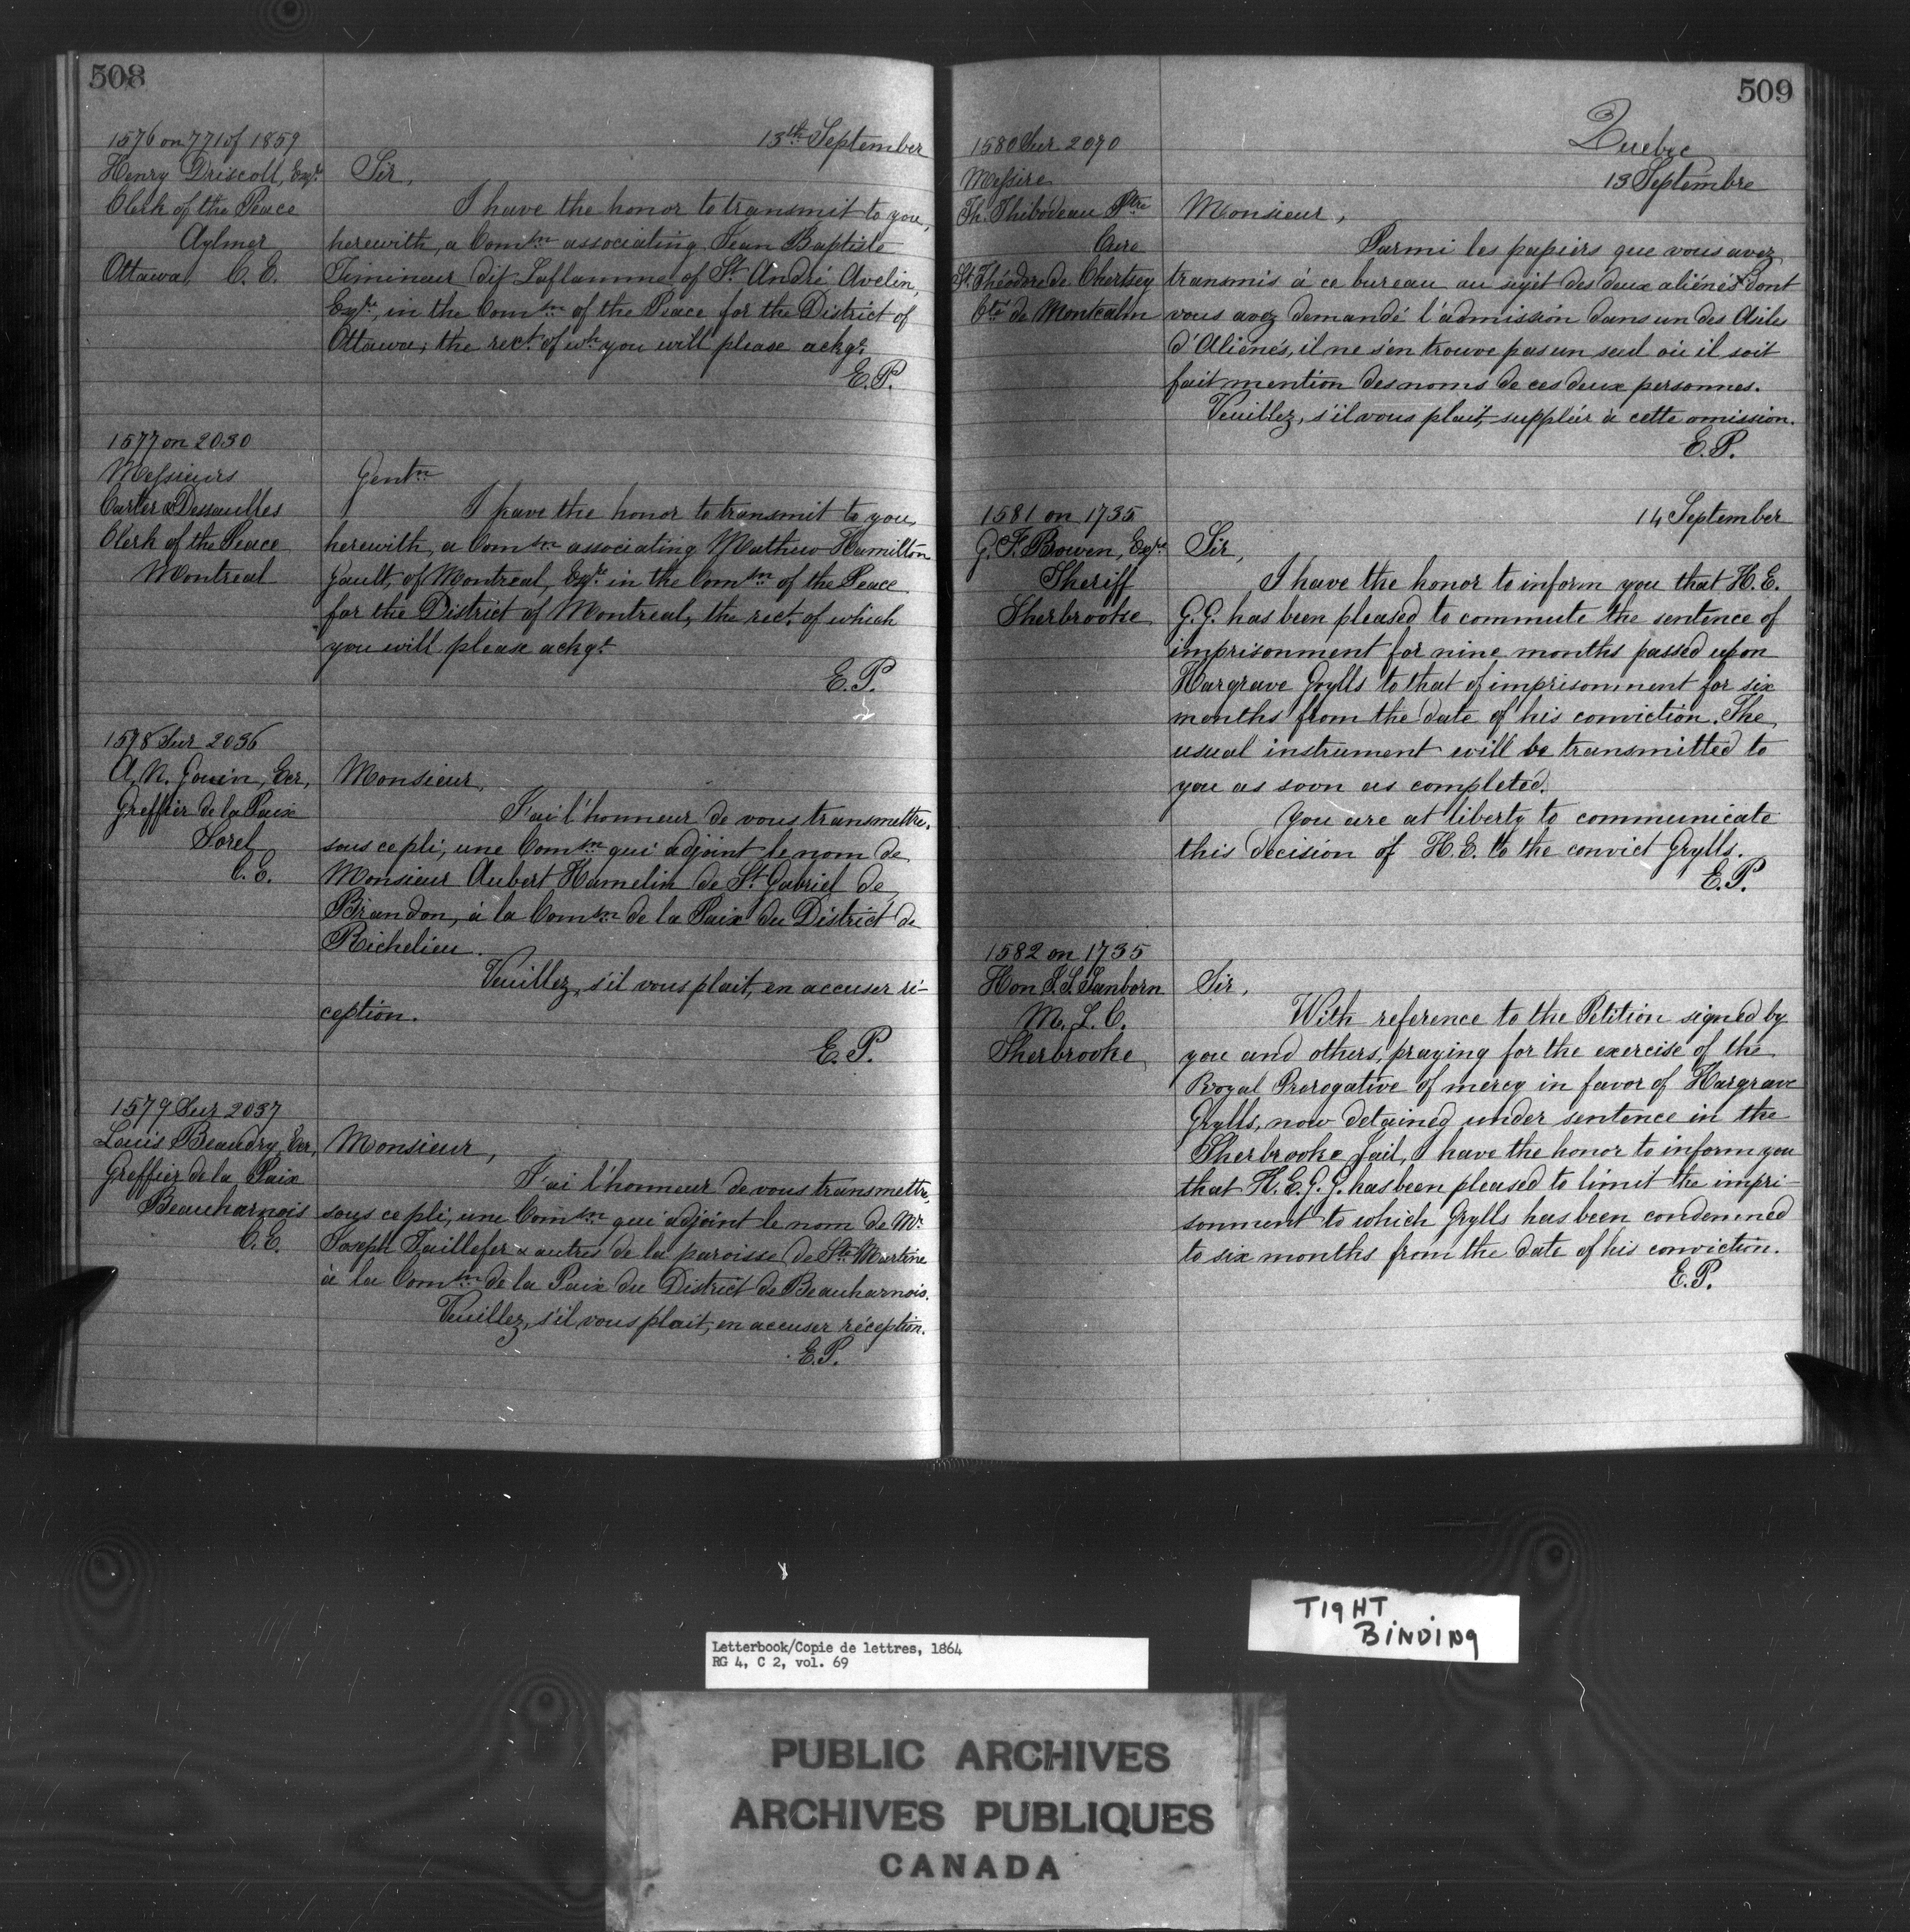 508
13th September
1576 on 771 of 1859
Henry Driscoll, Esqre
Clerk of the Peace
Aylmer
Ottawa, C. E.
Sir,
I have the honor to transmit to you,
herewith, a Comsn associating Jean Baptiste
dit Laflamme of St. André Avelin,
Esqre, in the Comsn of the Peace for the District of
Ottawa; the rect. of wh. you will please ackge.
E.P.
1577 on 2030
Messieurs
Carter & Dessaulles
Clerk of the Peace
Montreal
Gentn
I have the honor to transmit to you,
herewith, a Comsn associating Mathew Hamilton
Gault, of Montreal, Esqre in the Comsn of the Peace
for the District of Montreal, the rect. of which
you will please ackge.
E.P.
1578 Sur 2036
A. N. Gouin, Ecr,
Greffier de la Paix
Sorel
C. E.
Monsieur,
J'ai l'honneur de vous transmettre,
sous ce pli, une Comsn qui adjoint le nom de
Monsieur Aubert Hamelin de St. Gabriel de
Brandon, à la Comsn de la Paix du District de
Richelieu.
Veuillez, s'il vous plait, en accuser ré-
ception.
E.P.
1579 Sur 2037
Louis Beaudry, Ecr,
Greffier de la Paix
Beauharnois
C.E.
Monsieur,
J'ai l'honneur de vous transmettre,
sous ce pli, une Comsn qui adjoint le nom de Mr
Joseph Taillefer & autres de la paroisse de Ste Martine
à la Comsn de la Paix du District de Beauharnois.
Veuillez, s'il vous plait, en accuser réception.
E.P.
509
Quebec
13 Septembre
1580 Sur 2070
Messire
Th. Thibodeau Ptre
Curé
St. Théodore de Chertsey
Cté de Montcalm
Monsieur,
Parmi les papiers que vous avez
transmis à ce bureau au sujet des deux aliénés dont
vous avez demandé l'admission dans un des Asiles
d'Aliénés, il ne s'en trouve pas un seul où il soit
fait mention des noms de ces deux personnes.
Veuillez, s'il vous plait, suppléer à cette omission.
E.P.
14 September
1581 on 1735
G. F. Bowen, Esqre
Sheriff
Sherbrooke
Sir,
I have the honor to inform you that H. E.
G. G. has been pleased to commute the sentence of
imprisonment for nine months passed upon
Hargrave Grylls to that of imprisonment for six
months from the date of his conviction. The
usual instrument will be transmitted to
you as soon as completed.
You are at liberty to communicate
this decision of H. E. to the convict Grylls.
E.P.
1582 on 1735
Hon J. S. Sanborn
M. L. C.
Sherbrooke
Sir,
With reference to the Petition signed by
you and others, praying for the exercise of the
Royal Prerogative of mercy in favor of Hargrave
Grylls, now detained under sentence in the
Sherbrooke Jail, I have the honor to inform you
that H. E. G. G. has been pleased to limit the impri-
sonment to which Grylls has been condemned
to six months from the date of his conviction.
E.P.
TIGHT
BINDING
Letterbook/Copie de lettres, 1864
RG 4, C 2, vol. 69
PUBLIC ARCHIVES
ARCHIVES PUBLIQUES
CANADA